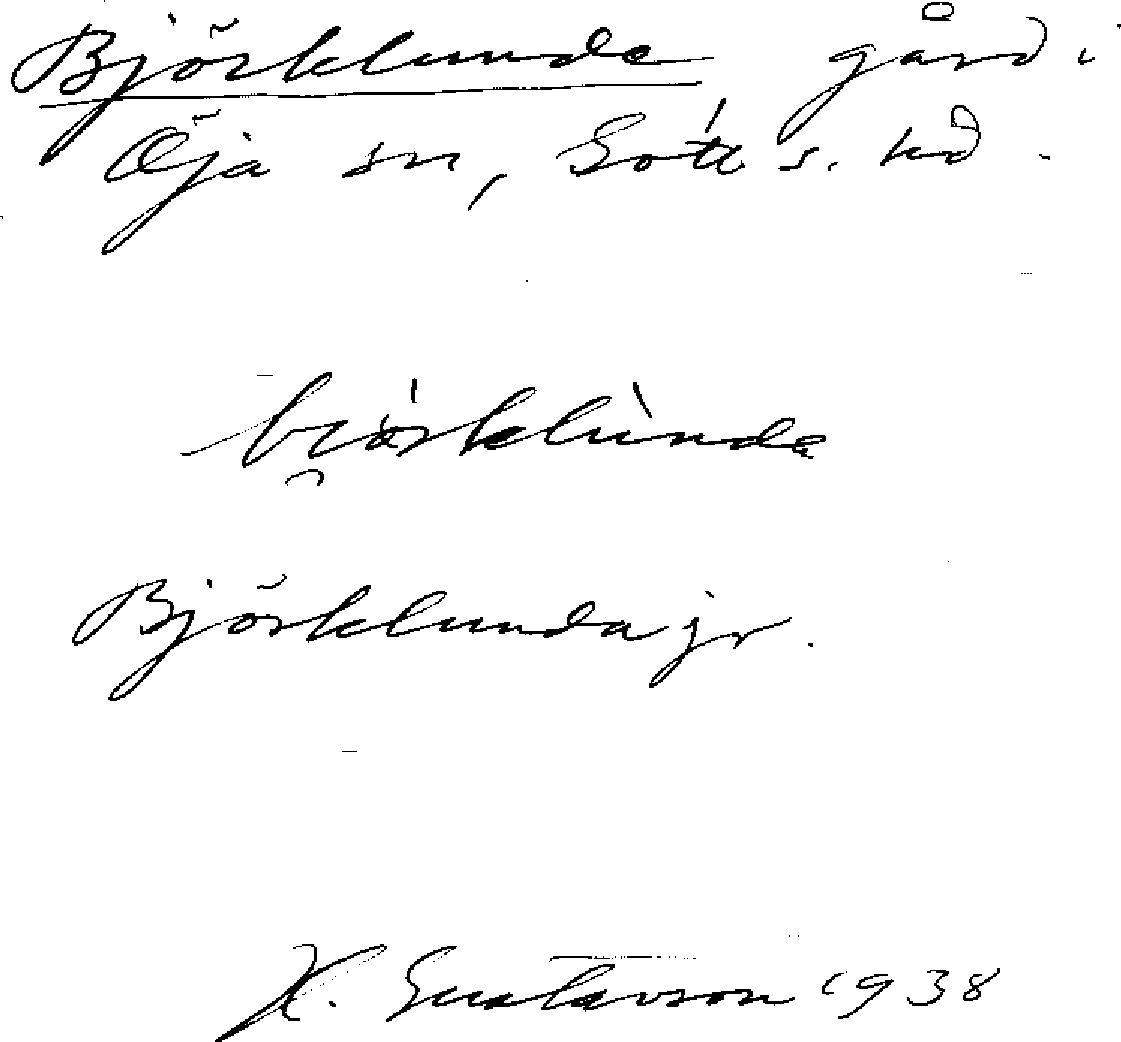 Björklunda gård i
Öja sn, Gotl. s. hd.
bi̯órklùnda
Björklunda jr.
H. Gustavson 1938